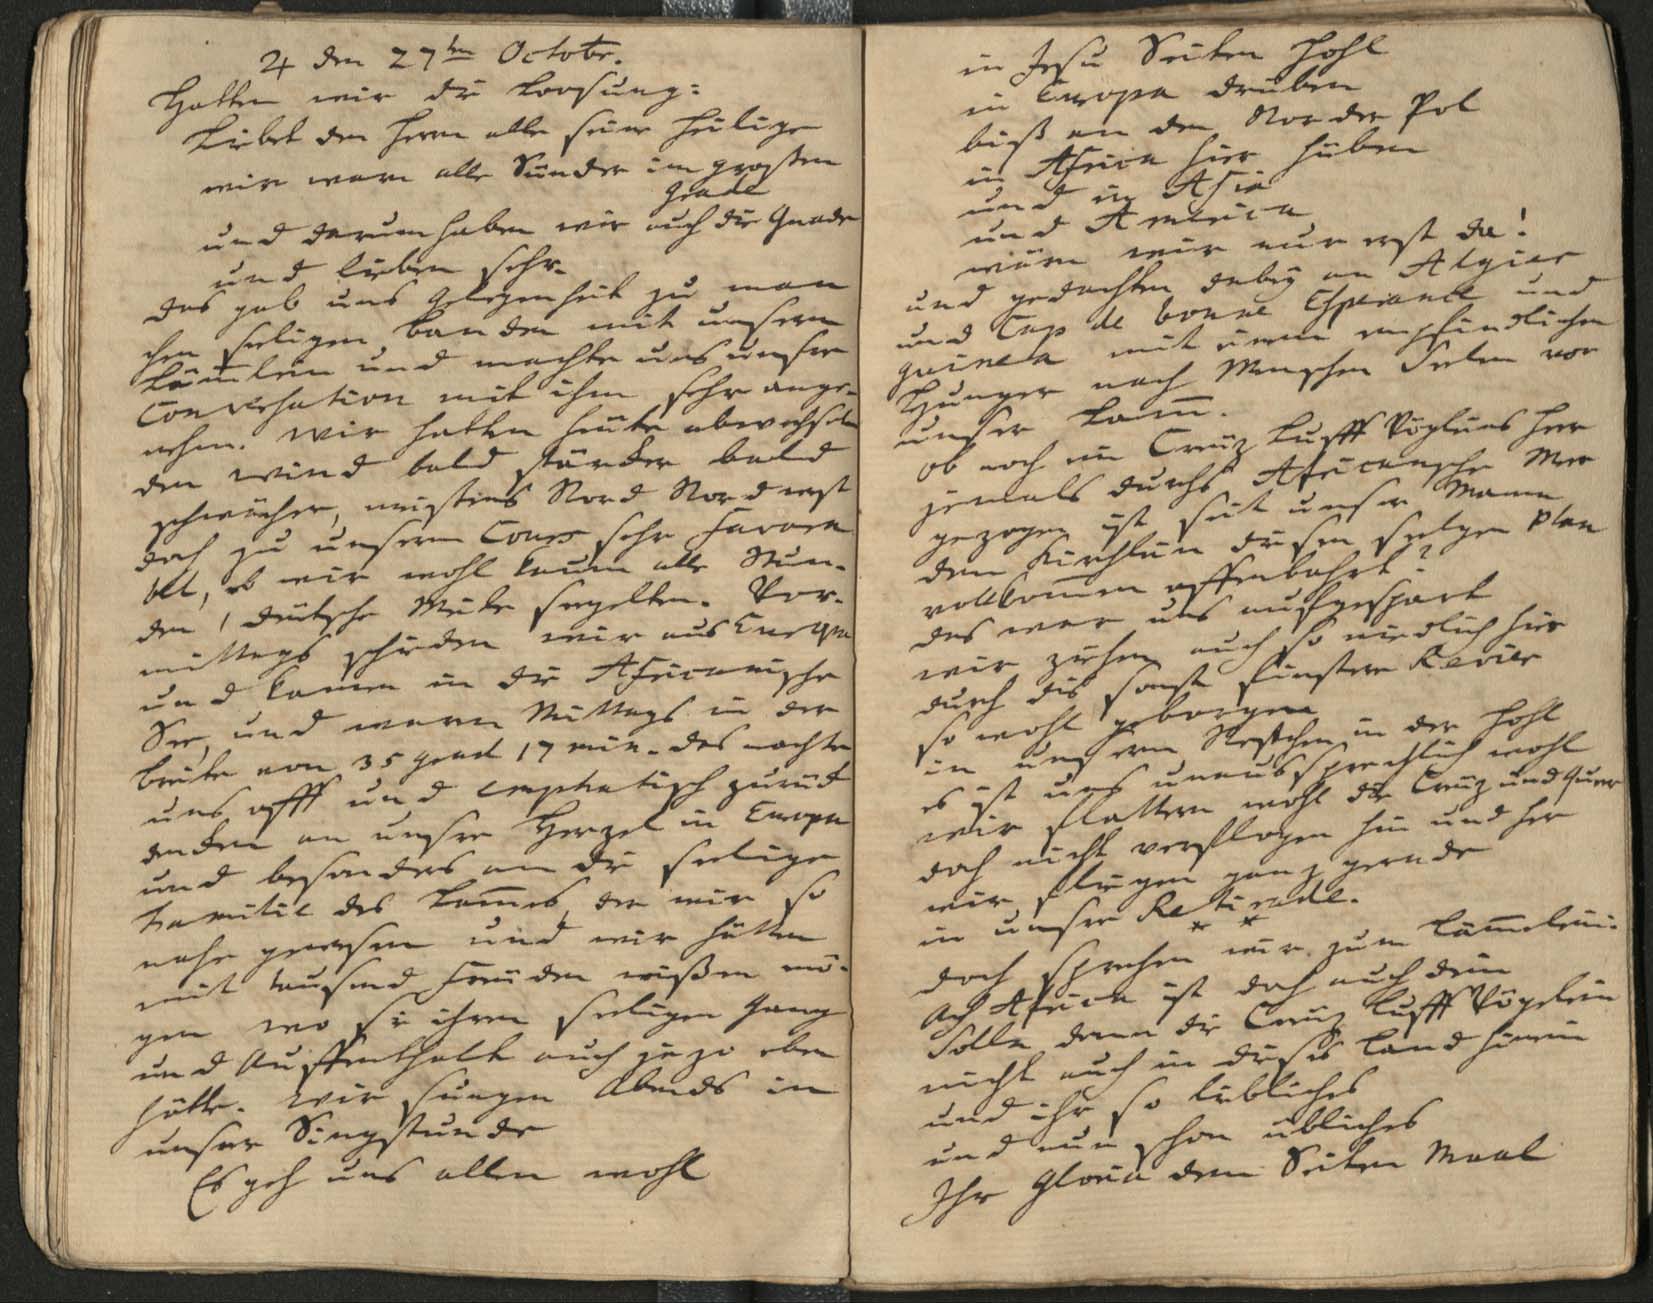 ♃ den 27ten Octobr.
Hatten wir die Loosung:
Liebet den Herrn alle seine Heilige
wir warn alle Sünder im grossen
Grade
und darum haben wir auch die Gnade
und lieben sehr.
das gab uns Gelegenheit zu man
chen seeligen banden mit unserm
Lämlein und machte uns unsre
Conversation mit ihm sehr ange-
nehm. Wir hatten heute abwechseln
den wind bald stärcker bald
schwächer, meistens Nord Nord west
doch zu unserm Cours sehr favora
bel, ob wir wohl kaum alle Stun-
den 1 deutsche Meile seegelten. Vor-
mittags schieden wir aus Europa
und kamen in die Africanische
See, und waren Mittags in der
breite von 35 grad 17 min. das machte
uns offt und emphatisch zurück
dencken an unsre Herzel in Europa
und besonders an die seelige
Familie des Lam̄es, der wir so
nahe gewesen und wir hätten
mit tausend Freuden wissen mö-
gen wo sie ihren seeligen Gang
und Auffenthalt auch jezo eben
hätte. Wir sungen Abends in
unsrer Singstunde
Es geh uns allen wohl
in Jesu Seiten Hohl
in Europa drüben
biss an den Norder Pol
in Africa hier hüben
und in Asia
und America
wärn wir nur erst da!
und gedachten dabey an Algier
und Cap de bonne Esperance und
guinea mit einem empfindlichen
Hunger nach Menschen Seelen vor
unser Lam̄.
Ob noch ein Creuz Lufft Vögleins Heer
jemals durchs Africansche Meer
gezogen ist seit unsre Mama
dem Kirchlein diesen selgen Plan
vollkom̄en offenbahrt?
das war uns aufgespart
wir ziehen auch so niedlich hier
durch dis sonst finstere Revier
so wohl geborgen
in unserm Nestchen in der Hohl
es ist uns unaussprechlich wohl
wir flattern wohl die Creuz und Queer
doch nicht verflogen hin und her
wir fliegen ganz gerade
in unsre Retirade.
* *
doch sprechen wir zum Läm̄elein:
Ach Africa ist doch auch dein
Solln denn die Creuz Lufft Vögelein
nicht auch in dieses Land hinein
und ihr so liebliches
und nun schon übliches
Ihr Gloria dem Seiten Maal